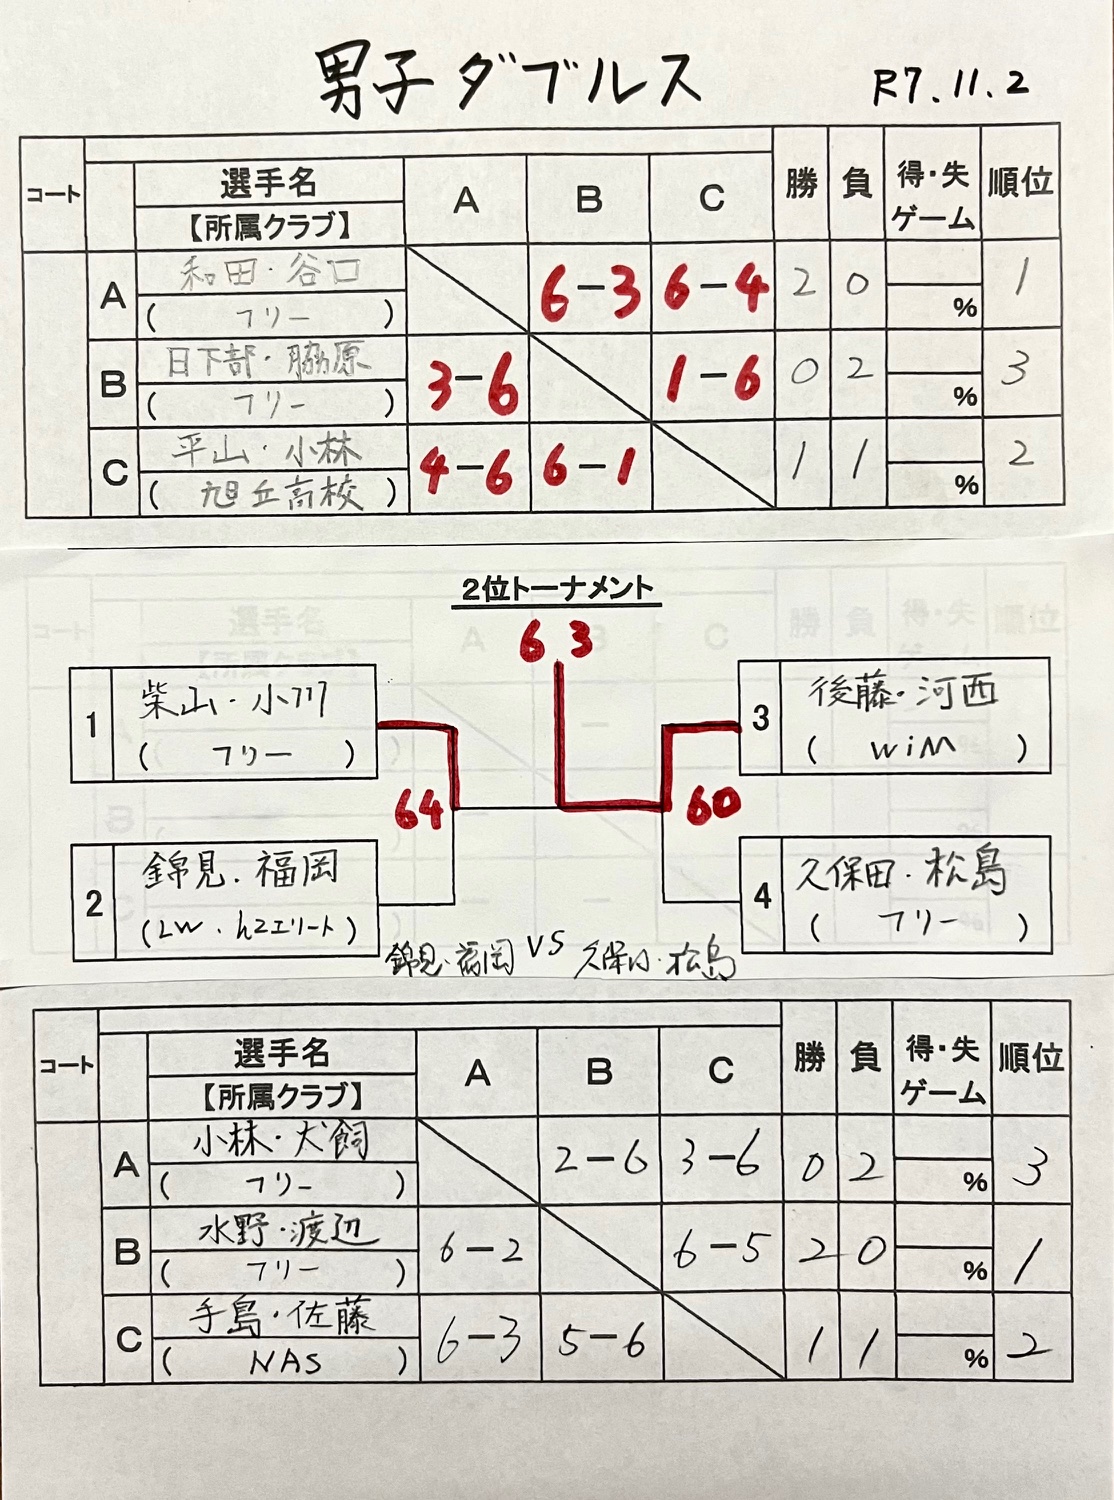 男子ダブルス R7.11.2
コート 選手名 【所属クラブ】 A B C 勝 負 得・失ゲーム 順位
A 和田・谷口 6-3 6-4 2 0 1
( フリー ) %
B 日下部・脇原 3-6 1-6 0 2 3
( フリー ) %
C 平山・小林 4-6 6-1 1 1 2
( 旭丘高校 ) %
2位トーナメント
6 3
1 柴山・小川
( フリー )
3 後藤・河西
( WiM )
64 60
2 錦見・福岡
(LW・h2エリート)
4 久保田・松島
( フリー )
錦見・福岡 VS 久保田・松島
コート 選手名 【所属クラブ】 A B C 勝 負 得・失ゲーム 順位
A 小林・犬飼 2-6 3-6 0 2 3
( フリー ) %
B 水野・渡辺 6-2 6-5 2 0 1
( フリー ) %
C 手島・佐藤 6-3 5-6 1 1 2
( NAS ) %